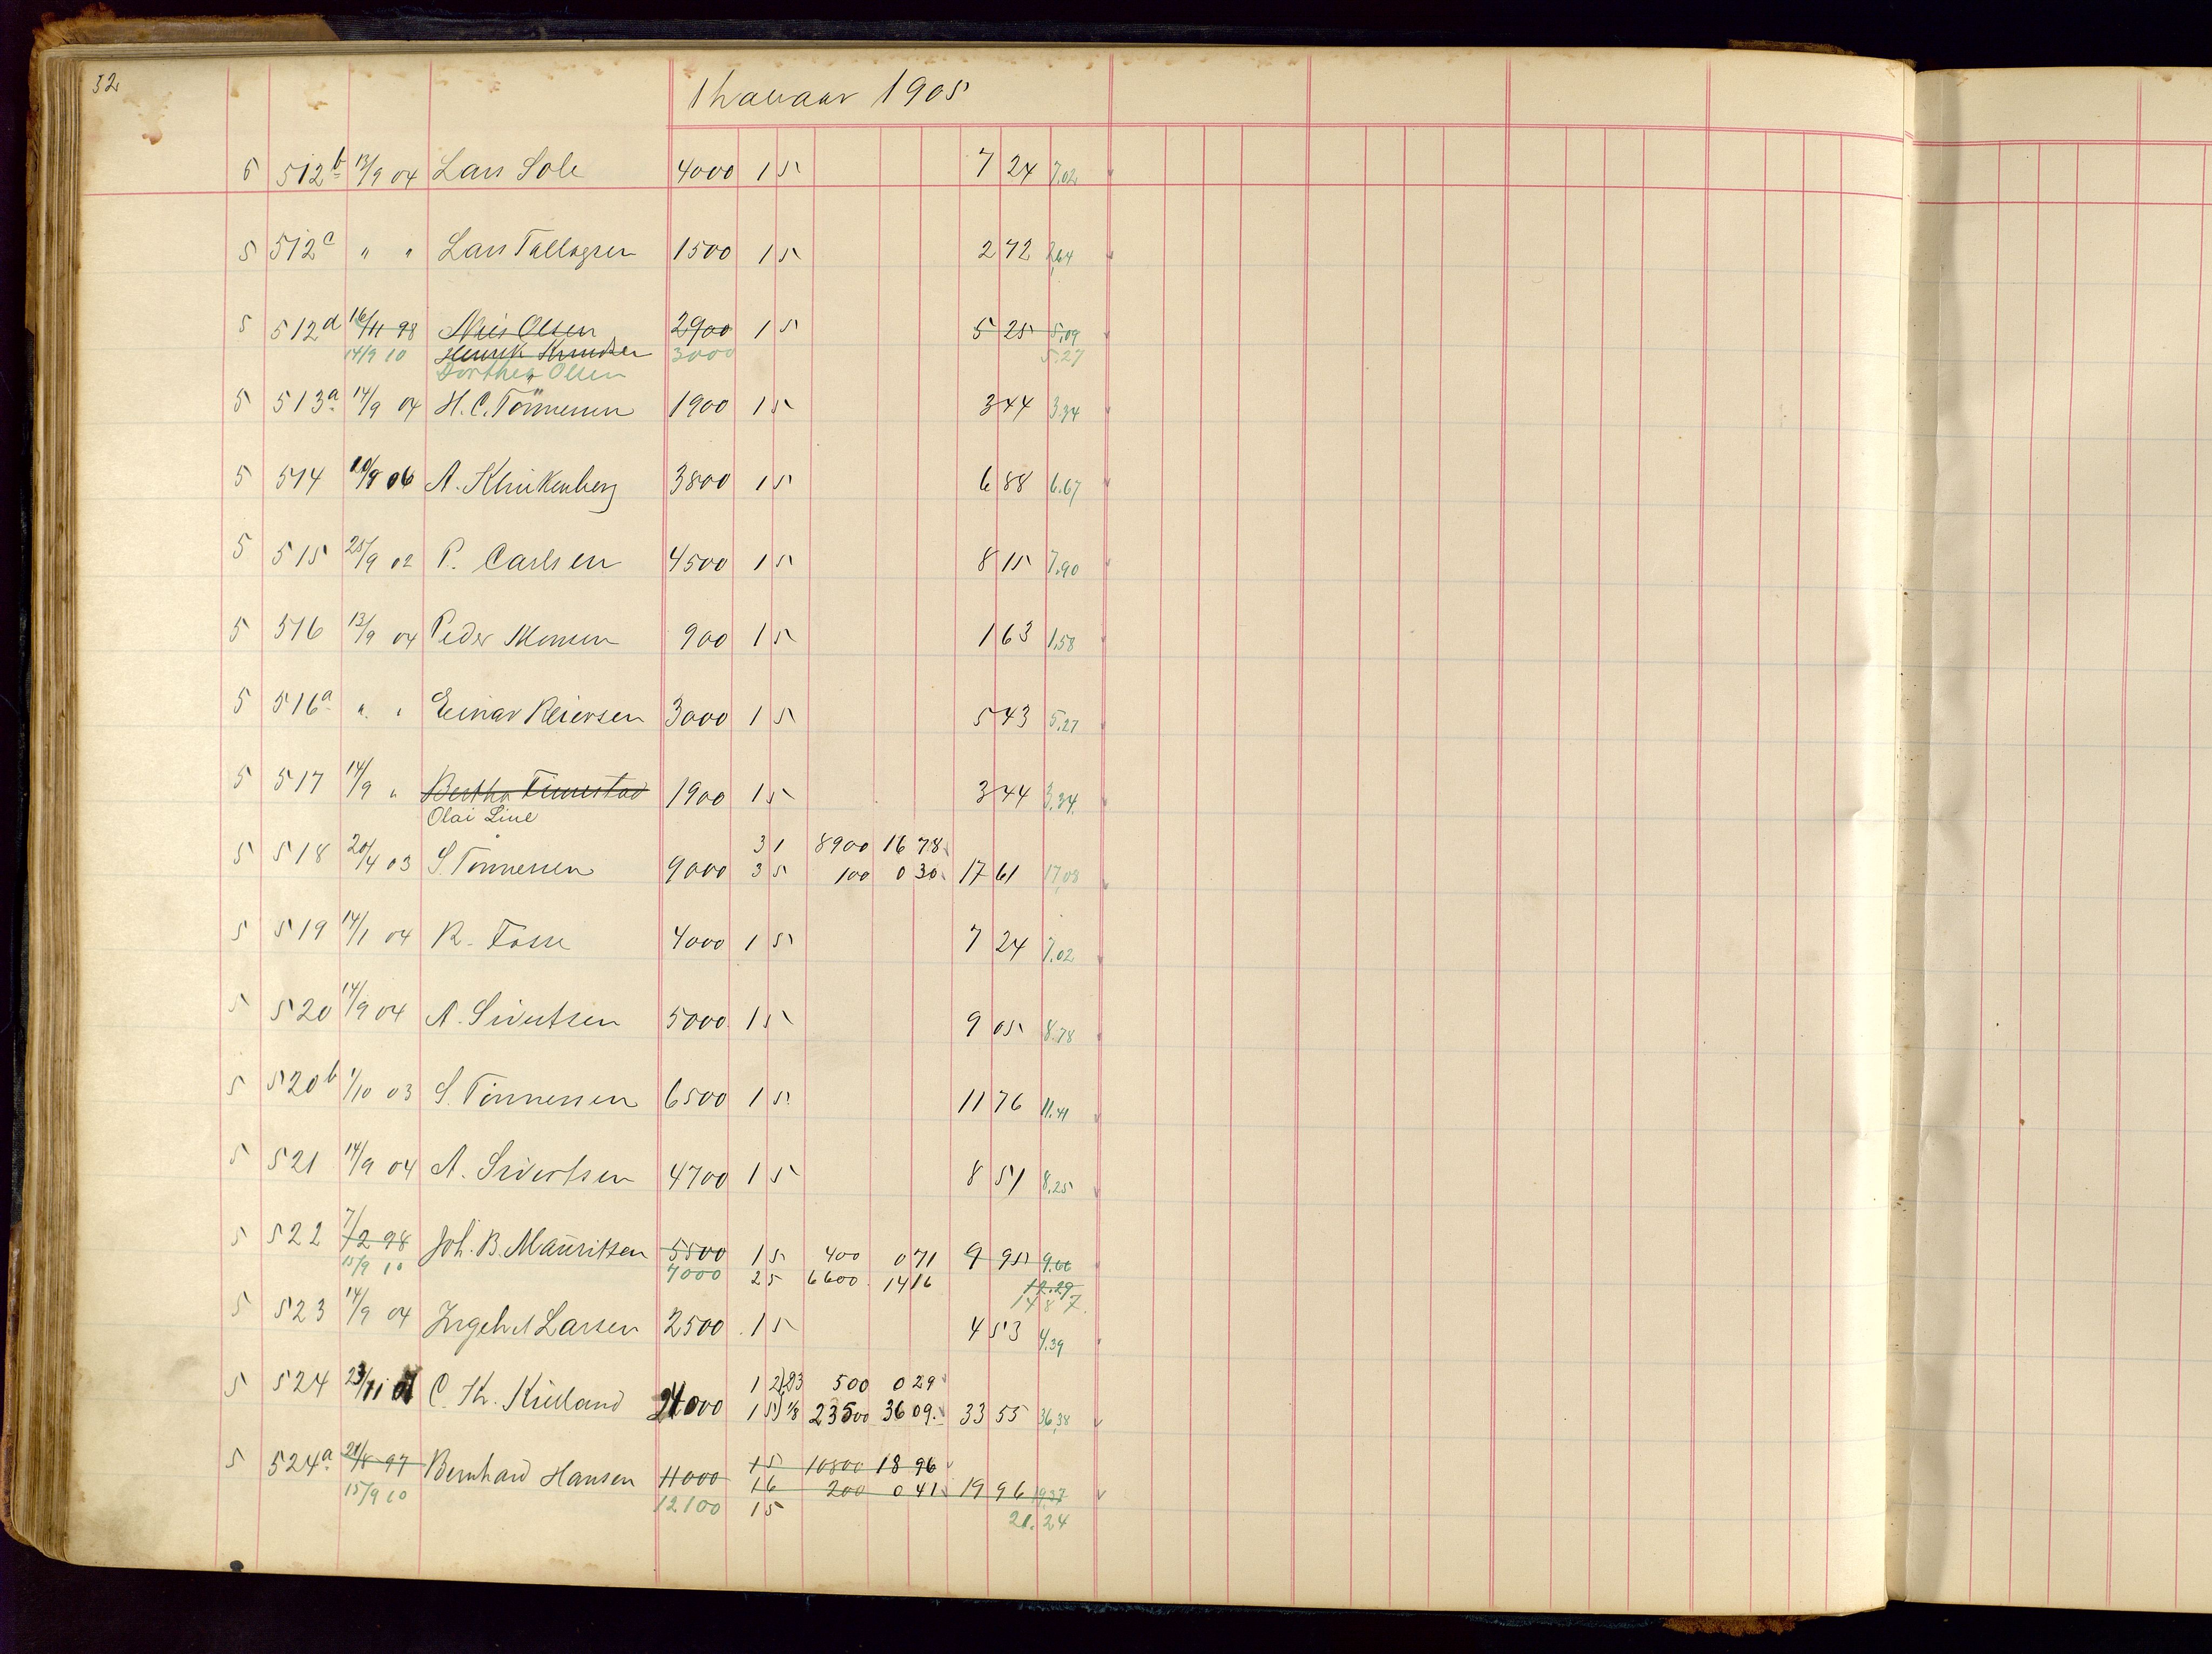 32
1 Januar 1905
5 512b 13/9 04 Lars Sole 4000 1 5 7 24 7.02
5 512c " " Lars Tallagsen 1500 1 5 2 72 2,64
5 512d 16/11 98 Nils Olsen 2900 1 5 5 25 5,09
14/9 10 Henrik Knudsen 3000 5.27
Dorthea Olsen
5 513a 14/9 04 H. C. Tönnesen 1900 1 5 3 44 3.34
5 514 10/9 06 A. Klinkenberg 3800 1 5 6 88 6.67
5 515 25/9 02 P. Carlsen 4500 1 5 8 15 7.90
5 516 13/9 04 Peder Monsen 900 1 5 1 63 1,58
5 516a " " Einar Reiersen 3000 1 5 5 43 5.27
5 517 14/9 " Bertha Finnestad 1900 1 5 3 44 3,34
Olai Line
5 518 20/4 03 S. Tönnessen 9000 3 1 8900 16 78
3 5 100 0 30 17 61 17,08
5 519 14/1 04 R. Fosse 4000 1 5 7 24 7.02
5 520 14/9 04 A. Sivertsen 5000 1 5 9 05 8.78
5 520b 1/10 03 S. Tönnessen 6500 1 5 11 76 11.41
5 521 14/9 04 A. Sivertsen 4700 1 5 8 51 8.25
5 522 7/2 98 Joh. B. Mauritzen 5500 1 5 400 0 71 9 95 9.66
15/9 10 7000 2 5 6600 14 16 12.29
14 87
5 523 14/9 04 Ingebret Larsen 2500 1 5 4 53 4.39
5 524 23/11 C. Th. Kielland 24000 1 2 2/3 500 0 29
1 5 1/8 23500 36 09 33 55 36,38
5 524a 21/8 97 Bernhard Hansen 11000 1 5 10800 18 96
1 6 200 0 41 19 96 19.37
15/9 10 12100 1 5 21.24